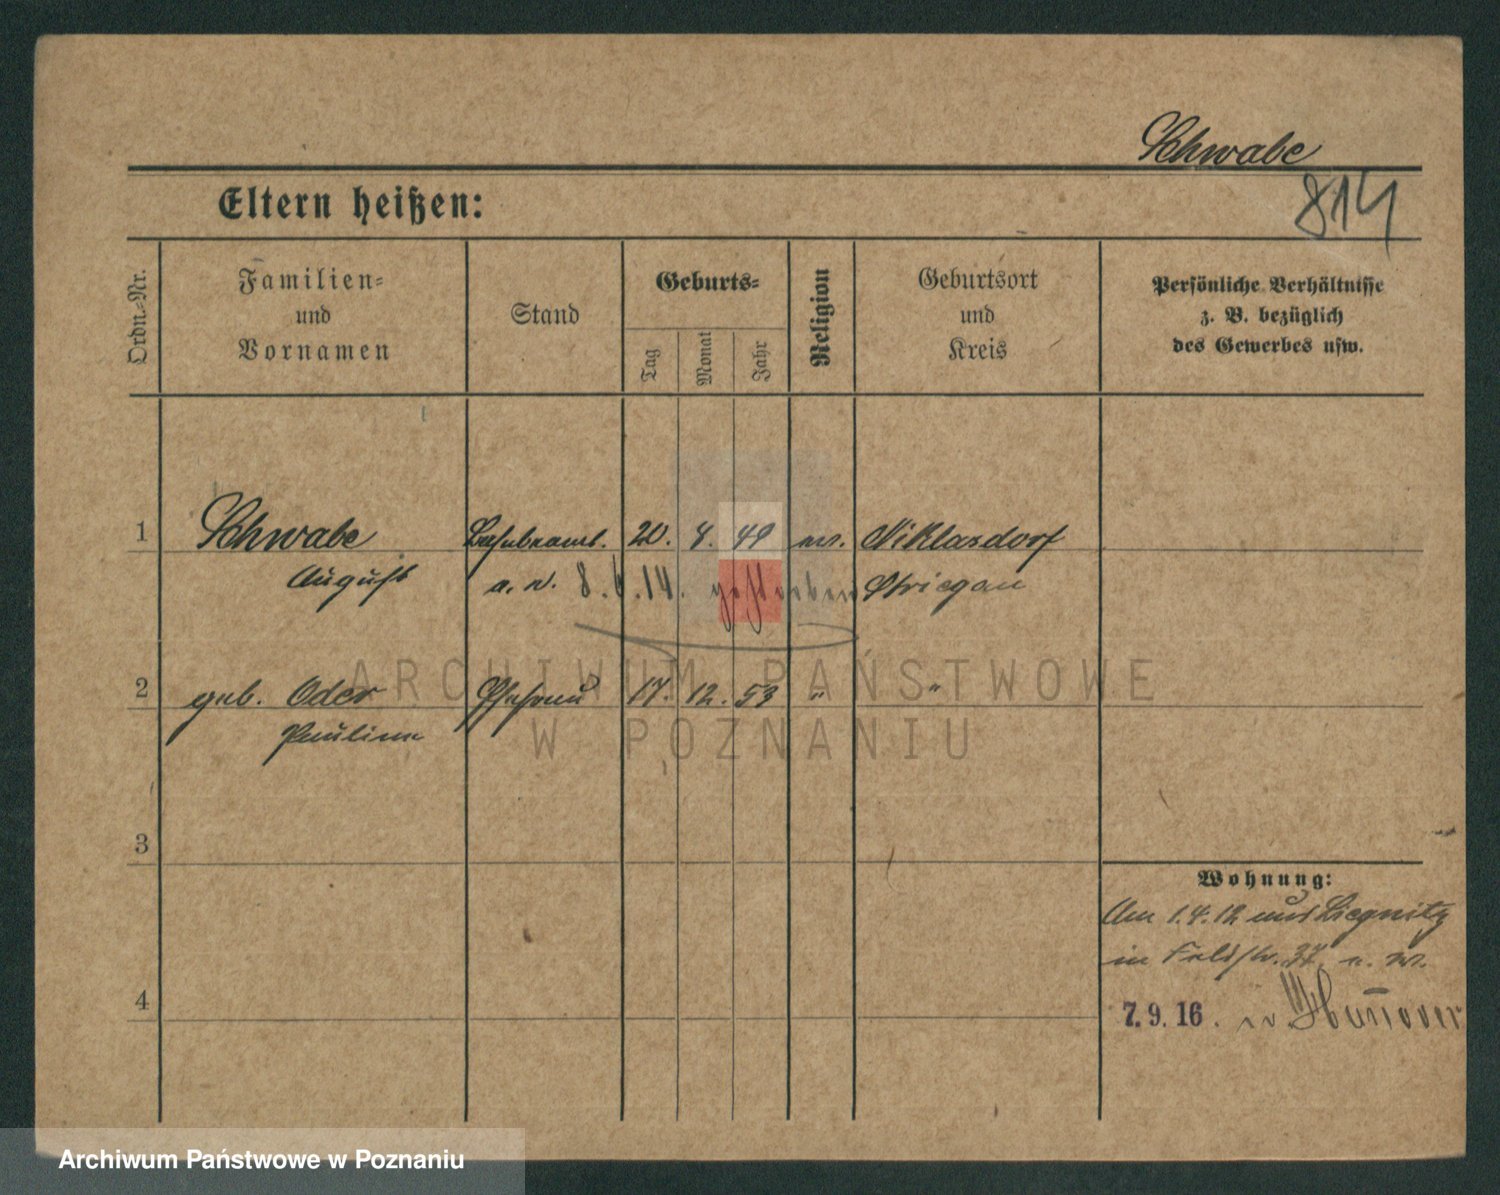 Schwabe
814
Eltern heißen:
Ordn.-Nr.
Familien-
und
Vornamen
Stand
Geburts-
Tag
Monat
Jahr
Religion
Geburtsort
und
Kreis
Persönliche Verhältnisse
z. B. bezüglich
des Gewerbes usw.
1 Schwabe 20. 4. 49 ev. Niklasdorf
August a. D. 8. 6. 14. gestorben Striegau
2 geb. Oder Ehefrau 17. 12. 53 " "
Pauline
3
Wohnung:
Am 1.4.12 aus Liegnitz
in Feldstr. 37
4
7. 9. 16. Hannover
ARCHIWUM PAŃSTWOWE
W POZNANIU
Archiwum Państwowe w Poznaniu